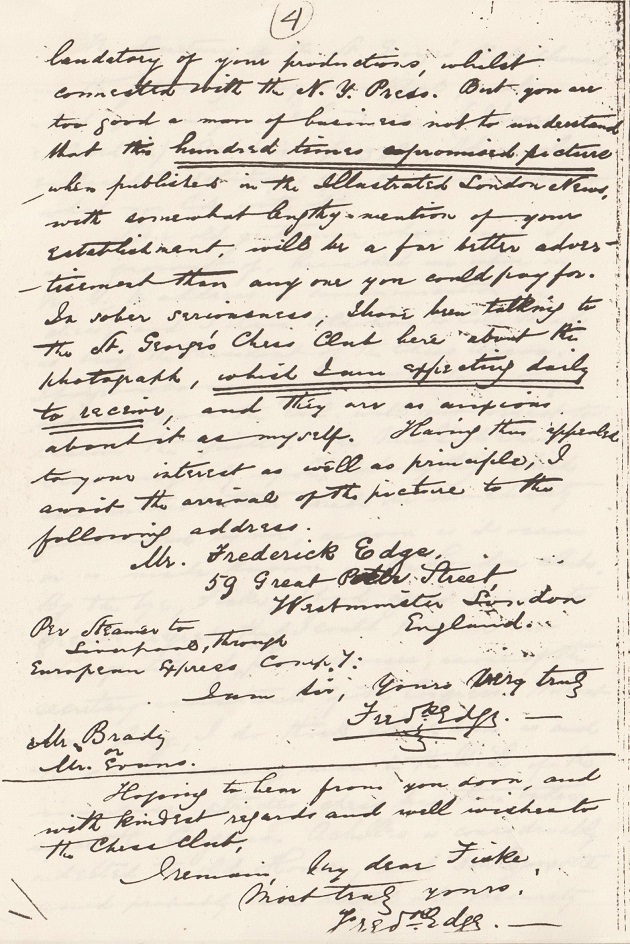 4
laudatory of your productions, whilst
connected with the N. Y. Press. But you are
too good a man of business not to understand
that this hundred times a promised picture
when published in the Illustrated London News,
with somewhat lengthy mention of your
establishment, will be a far better adver-
-tisement than any one you could pay for.
In sober seriousness, I have been talking to
the St. George's Chess Club here about the
photograph, which I am expecting daily
to receive, and they are as anxious
about it as myself. Having thus appealed
to your interest as well as principle, I
await the arrival of the picture to the
following address.
Mr. Frederick Edge,
59 Great Peter Street,
Westminster London
England.
Per Steamer to
Liverpool, through
European Express Comp.y:
I am Sir, Yours very truly
Fred.k Edge. —
Mr. Brady
or
Mr. Evans.
Hoping to hear from you soon, and
with kindest regards and well wishes to
the Chess Club,
I remain, my dear Fiske
Most truly yours.
Fred.k Edge. —